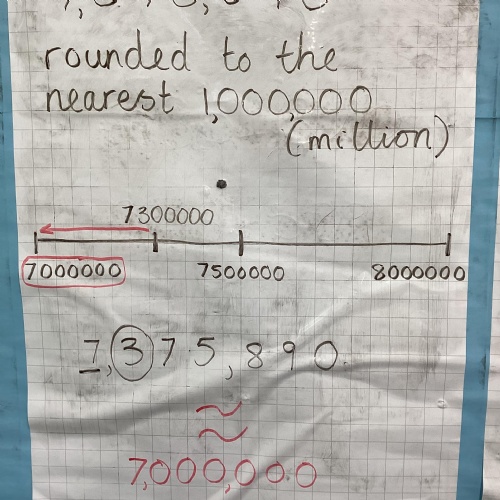 rounded to the
nearest 1,000,000
(million)
7300000
7000000 7500000 8000000
7,375,890
≈
7,000,000